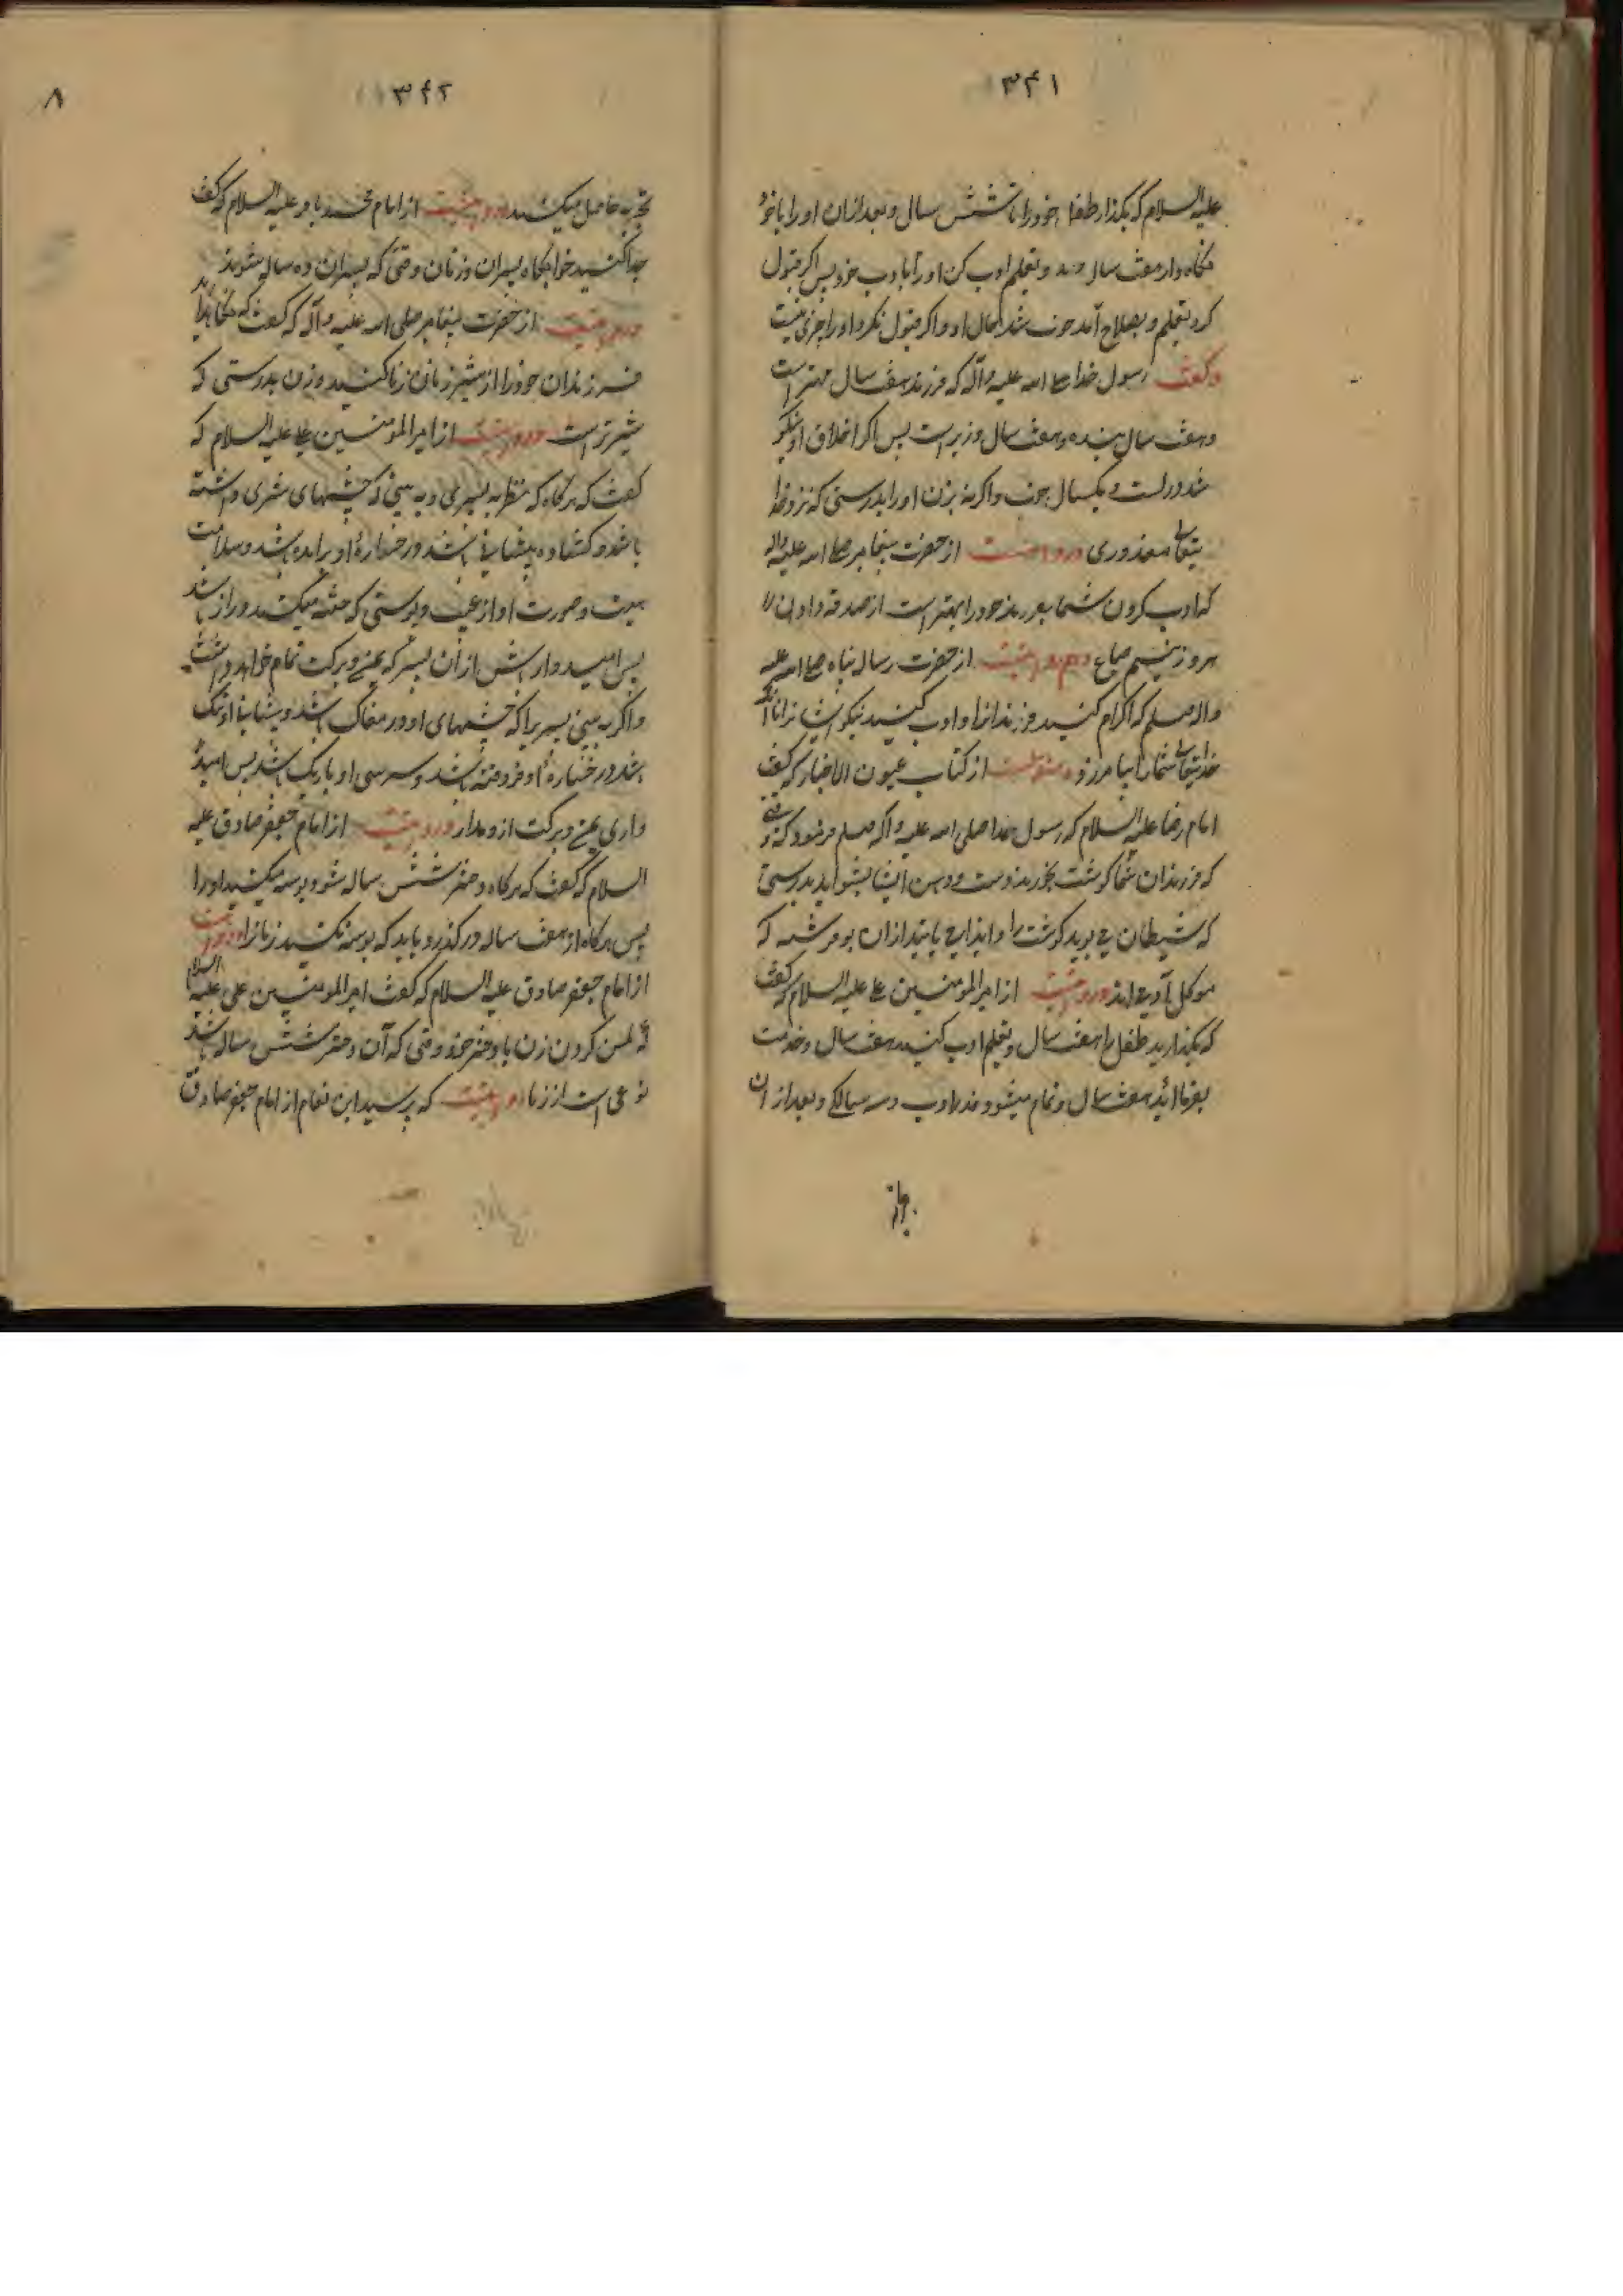 ۳۴۱
علیه السلام که بکذار طفل خود را تا شش سال و بعد ازان او را با خود
نکاه دار هفت سال و تعلیم ادب کن او را باداب خود پس اکر قبول
کرد تعلیم و بصلاح آمد خوب شد حال او و اکر قبول نکرد او را چیزی نیست
و کفت رسول خدا صلی الله علیه و آله که فرزند هفت سال مهتر است
و هفت سال بنده و هفت سال وزیر است پس اکر اخلاق او نیکو
شد در بیست و یکسال خوب و اکر نه بزن او را بدرستی که نزد خدا
یتعالی معذوری و روایتست از حضرت پیغامبر صلی الله علیه واله
که ادب کردن شما فرزند خود را بهتر است از صدقه دادن
هر روز نیم صاع و هم روایتست از حضرت رسالت پناه صلی الله علیه
واله وسلم که اکرام کنید فرزندانرا و ادب کنید نیکو ایشانرا تا آنکه
خدایتعالی شما را بیامرزد و منقولست از کتاب عیون الاخبار که کفت
امام رضا علیه السلام که رسول خدا صلی الله علیه و آله وسلم فرمود که وقتی
که فرزندان شما کوشت بخورند دست و دهن ایشان بشوئید بدرستی
که شیطان می بوید کوشت را و ایذا می یابند ازان بو فرشته که
موکل آدمی اند و روایتست از امیر المومنین علی علیه السلام که کفت
که بکذارید طفل را هفت سال و تعلیم ادب کنید هفت سال و خدمت
بفرمائید هفت سال و تمام میشود قد او در بیست و سه سالکی و بعد از ان
۳۴۲
۸
تجربه حاصل میکند و روایتست از امام محمد باقر علیه السلام که کفت
جدا کنید خوابکاه پسران و زنان وقتی که پسران ده ساله شوند
و روایتست از حضرت پیغامبر صلی الله علیه و آله که کفت که نکاه دارید
فرزندان خود را از شیر زنان زنا کننده و زن بدرستی که
شیر است و روایتست از امیر المومنین علی علیه السلام که
کفت که هرکاه که نظر به پسری و به بینی که چشمهای داشته
باشد و کشاده پیشانی باشد و رخساره او برآمده باشد و سلامت
هیئت و صورت او از عیب و پوستی که ختنه میکنند دراز باشد
پس امیدوار باش از ان پسر که یمن و برکت تمام خواهد داشت
و اکر به بینی پسر را که چشمهای او در مغاک باشد و پیشانی او تنک
باشد و رخساره او فرو رفته باشد و سر بینی او باریک باشد پس امید
واری یمن و برکت ازو مدار و روایتست از امام جعفر صادق علیه
السلام که کفت که هرکاه دختر شش ساله شود بوسه مکنید او را
پس هرکاه از هفت ساله درکذرد باید که بوسه نکند زنانرا و روایتست
از امام جعفر صادق علیه السلام که کفت امیر المومنین علی علیه السلام
که لمس کردن زن با دختر خود وقتی که آن دختر شش ساله باشد
نوعی است از زنا و روایتست که پرسید ابن نعمان از امام جعفر صادق